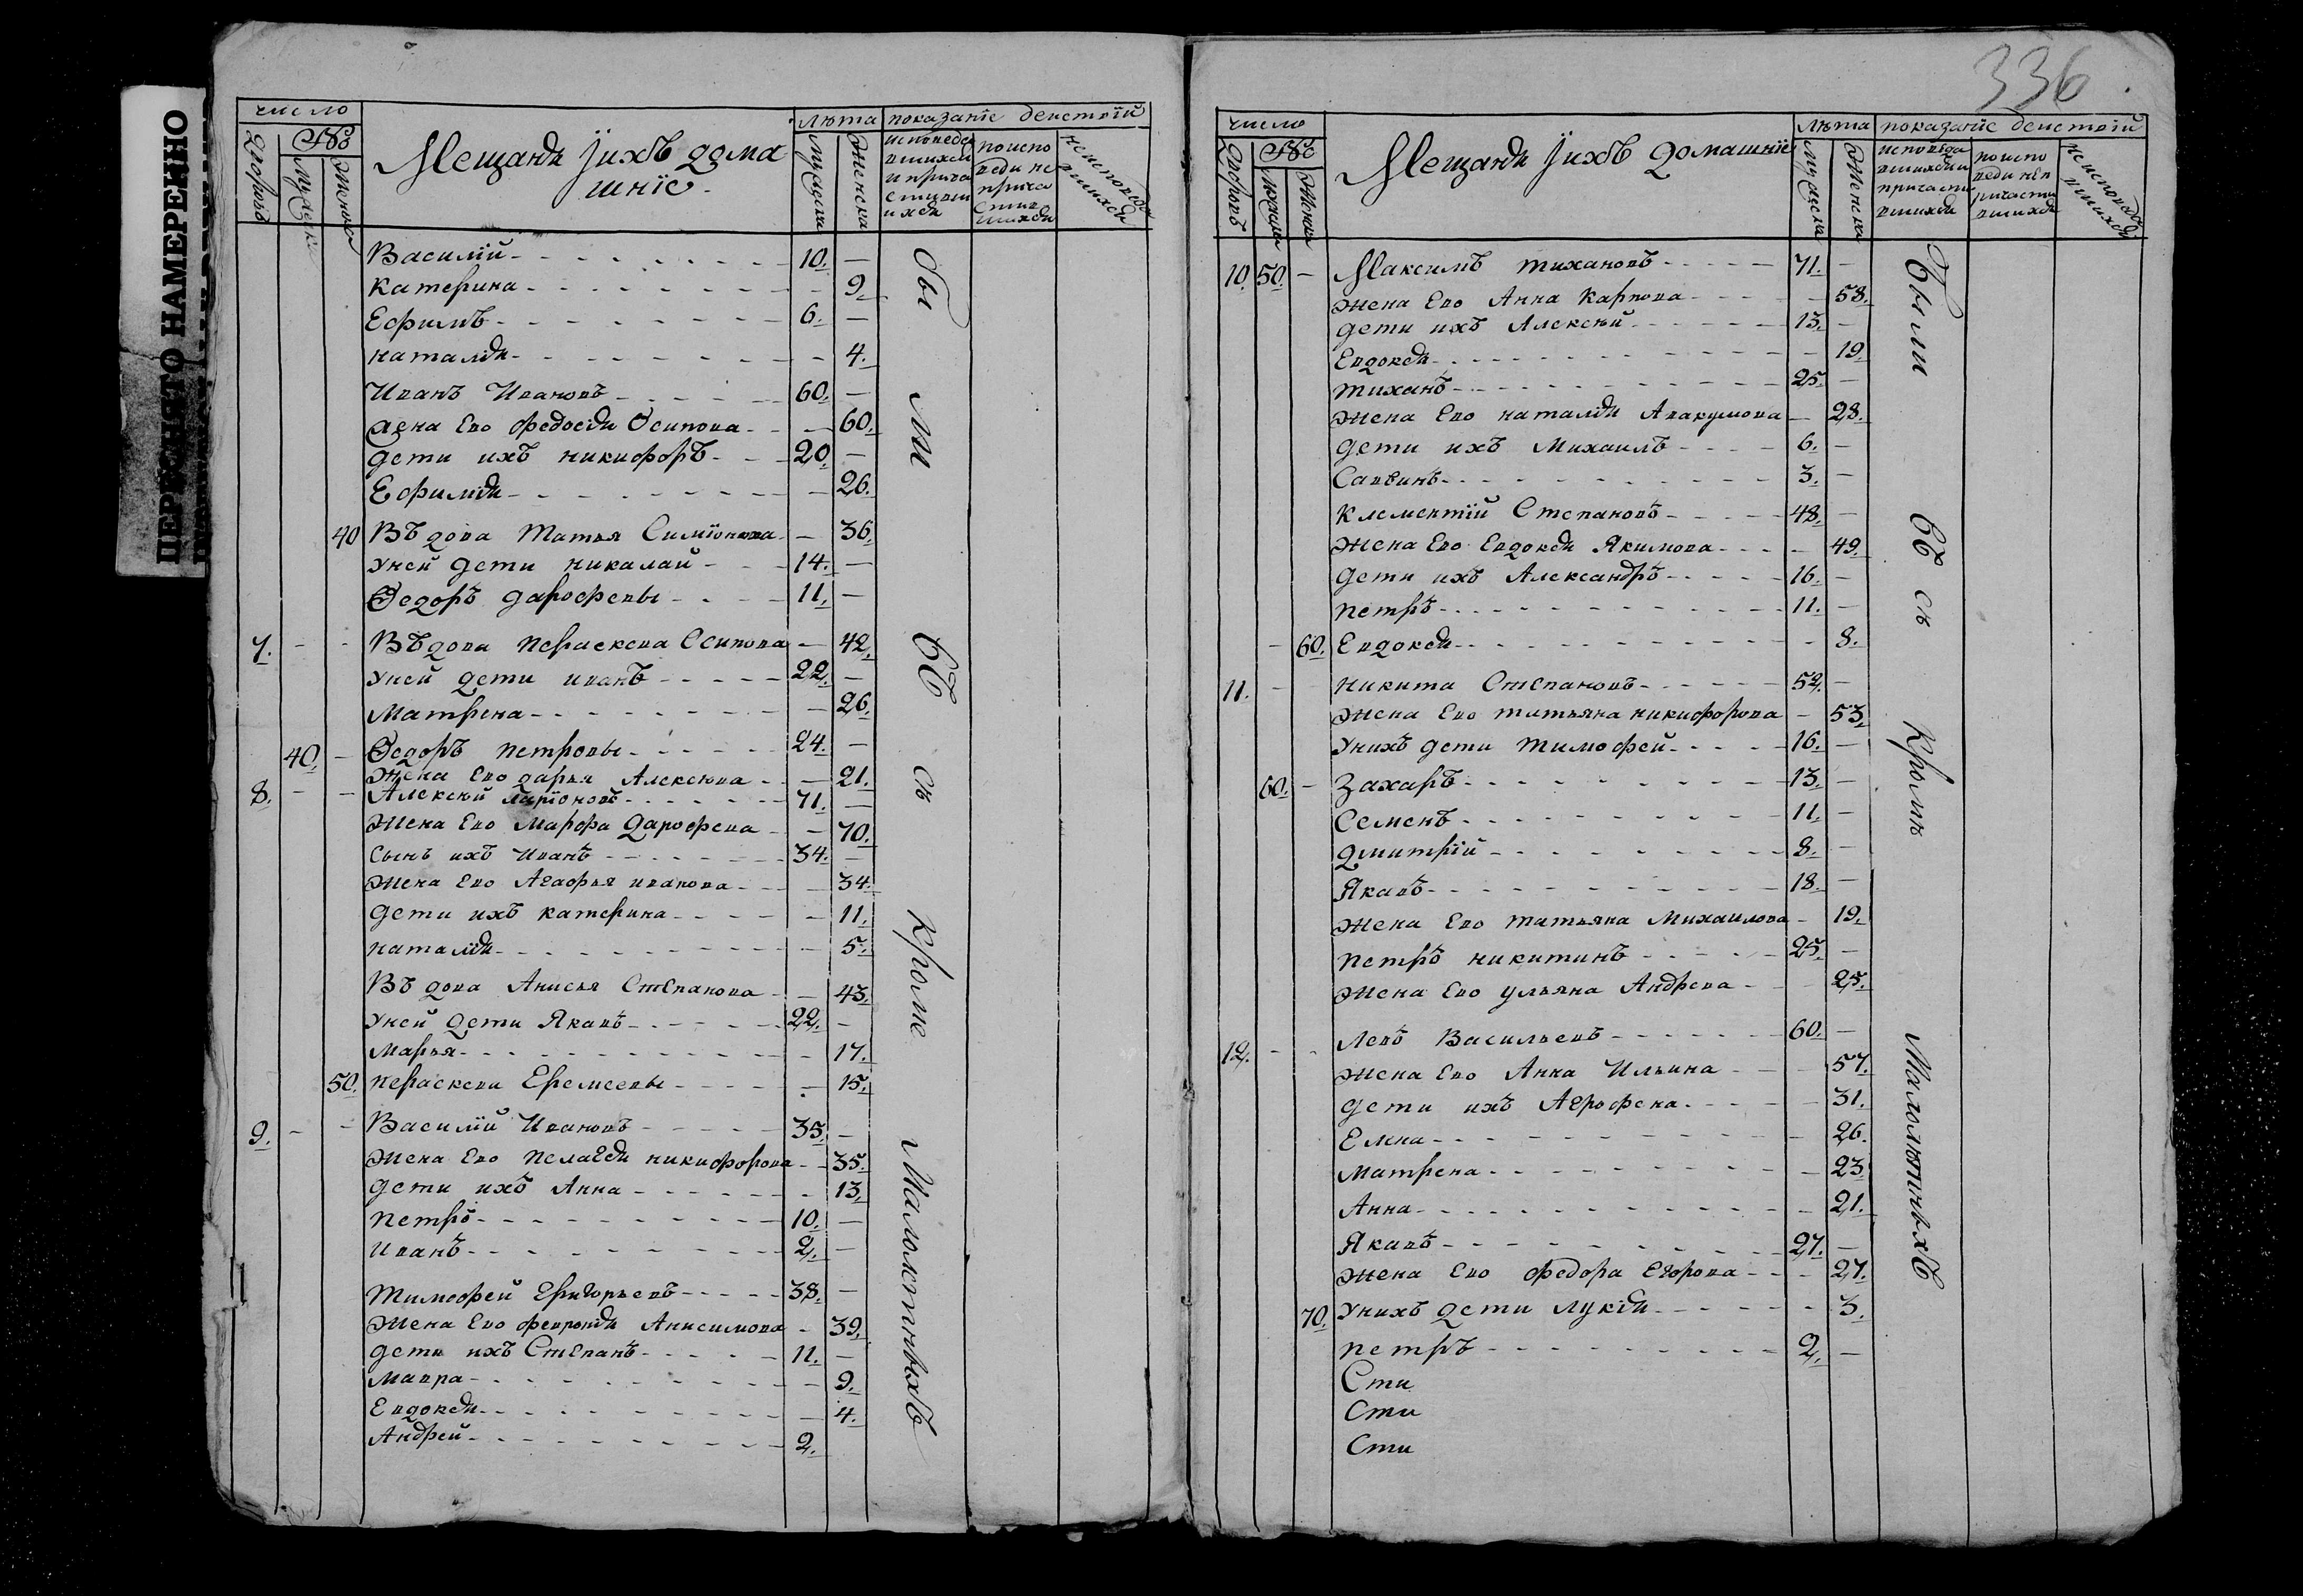 336
ПЕРЕСНЯТО НАМЕРЕННО
число
Дворовъ
Мужеска
Женска
Мещаня Їихъ дома
шнїе.
лѣта
Мужеска
Женска
показанїе деистїй
исповеда
вшихся
и прича
стивш
ихся
поиспо
веди не
прича
стив
шихся
неисповеда
вшихся
Василїй 10.
Катерина 9.
Ефимъ 6.
наталїя 4.
Иванъ Ивановъ 60.
жена Ево федосїя Осипова 60.
дети ихъ никифоръ 20.
Ефимїя 26.
40 Въдова Татья Симїонова 36.
уней дети никалай 14.
Ѳедоръ дарофевы 11.
7. Въдова пераскева Осипова 42.
уней дети иванъ 22.
Матрена 26.
40. Ѳедоръ петровы 24.
Жена Ево дарья Алексѣва 21.
8. Алексѣй ларїоновъ 71.
Жена Ево Марфа Дарофева 70.
Сынъ ихъ Иванъ 34.
Жена Ево Агафья иванова 34.
дети ихъ катерина 11.
наталїя 5.
Въдова Анисья Степанова 43.
уней дети Якавъ 22.
Марья 17.
50. пераскева Еремеевы 15.
9. Василїй Ивановъ 35.
Жена Ево пелагея никифорова 35.
дети ихъ Анна 13.
петръ 10.
Иванъ 2.
Тимофей Григорьевъ 38.
Жена Ево февронїя Анисимова 39.
дети ихъ Степанъ 11.
Мавра 9.
Евдокея 4.
Андрей 2.
Бы ли вЪ сѣ Кроме Малолетныхъ
число
Дворовъ
Мужеска
Женска
Мещаня Їихъ Домашнїе
лѣта
Мужеска
Женска
показанїе деистїй
исповѣда
вшихся и
причасти
вшихся
поиспо
веди неп
ричасти
вшихся
неисповеда
вшихся
10. 50. Максимъ тихановъ 71.
жена Ево Анна Карпова 58.
дети ихъ Алексѣй 13.
Евдокея 19.
Тиханъ 25.
жена Ево наталїя Авакумова 28.
дети ихъ Михаилъ 6.
Савеинъ 3.
Клементїй Степановъ 48.
Жена Ево Евдокея Якимова 49.
дети ихъ Александръ 16.
петръ 11.
60. Евдокея 8.
11. никита Степановъ 52.
Жена Ево татьяна никифорова 53.
Унихъ дети тимофей 16.
60. Захаръ 13.
Семенъ 11.
Дмитрїй 8.
Якавъ 18.
Жена Ево татьяна Михаилова 19.
петръ никитинъ 25.
Жена Ево ульяна Андрева 25.
12. Левъ Васильевъ 60.
жена Ево Анна Ильина 57.
дети ихъ Агрофена 31.
Елена 26.
Матрена 23.
Анна 21.
Якавъ 27.
Жена Ево федора Егорова 27.
70. Унихъ дети лукїя 3.
петръ 2.
Сти
Сти
Сти
Были вЪ сѣ Кромѣ Малолѣтныхъ